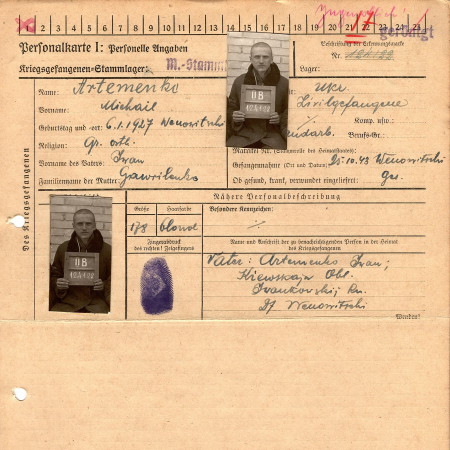 2 3 4 5 6 7 8 9 10 11 12 13 14 15 16 17 18 19 20 21 22 23 24 25
Jugendlich
17
geröntgt
Personalkarte I: Personelle Angaben
Beschriftung der Erkennungsmarke
Nr.
Kriegsgefangenen-Stammlager:
M.-Stamm
Lager:
Des Kriegsgefangenen
Name: Artemenko
Ukr.
Vorname: Michail
Zivilgefangene
Geburtstag und -ort: 6.1.1927 Wenowitschi
Komp. usw.:
Religion: Gr. orth.
Berufs-Gr.:
Vorname des Vaters: Iwan
Gefangennahme (Ort und Datum): 25.10.43 Wenowitschi
Familienname der Mutter: Gawrilenko
Ob gesund, krank, verwundet eingeliefert: ges.
Nähere Personalbeschreibung
Größe
Haarfarbe
Besondere Kennzeichen:
178
blond
Fingerabdruck
des rechten! Zeigefingers
Name und Anschrift der zu benachrichtigenden Person in der Heimat
des Kriegsgefangenen
Vater: Artemenko Iwan;
Kiewskaja Obl.
Iwankowskij Rn.
Df Wenowitschi
Wenden!
UB
UB